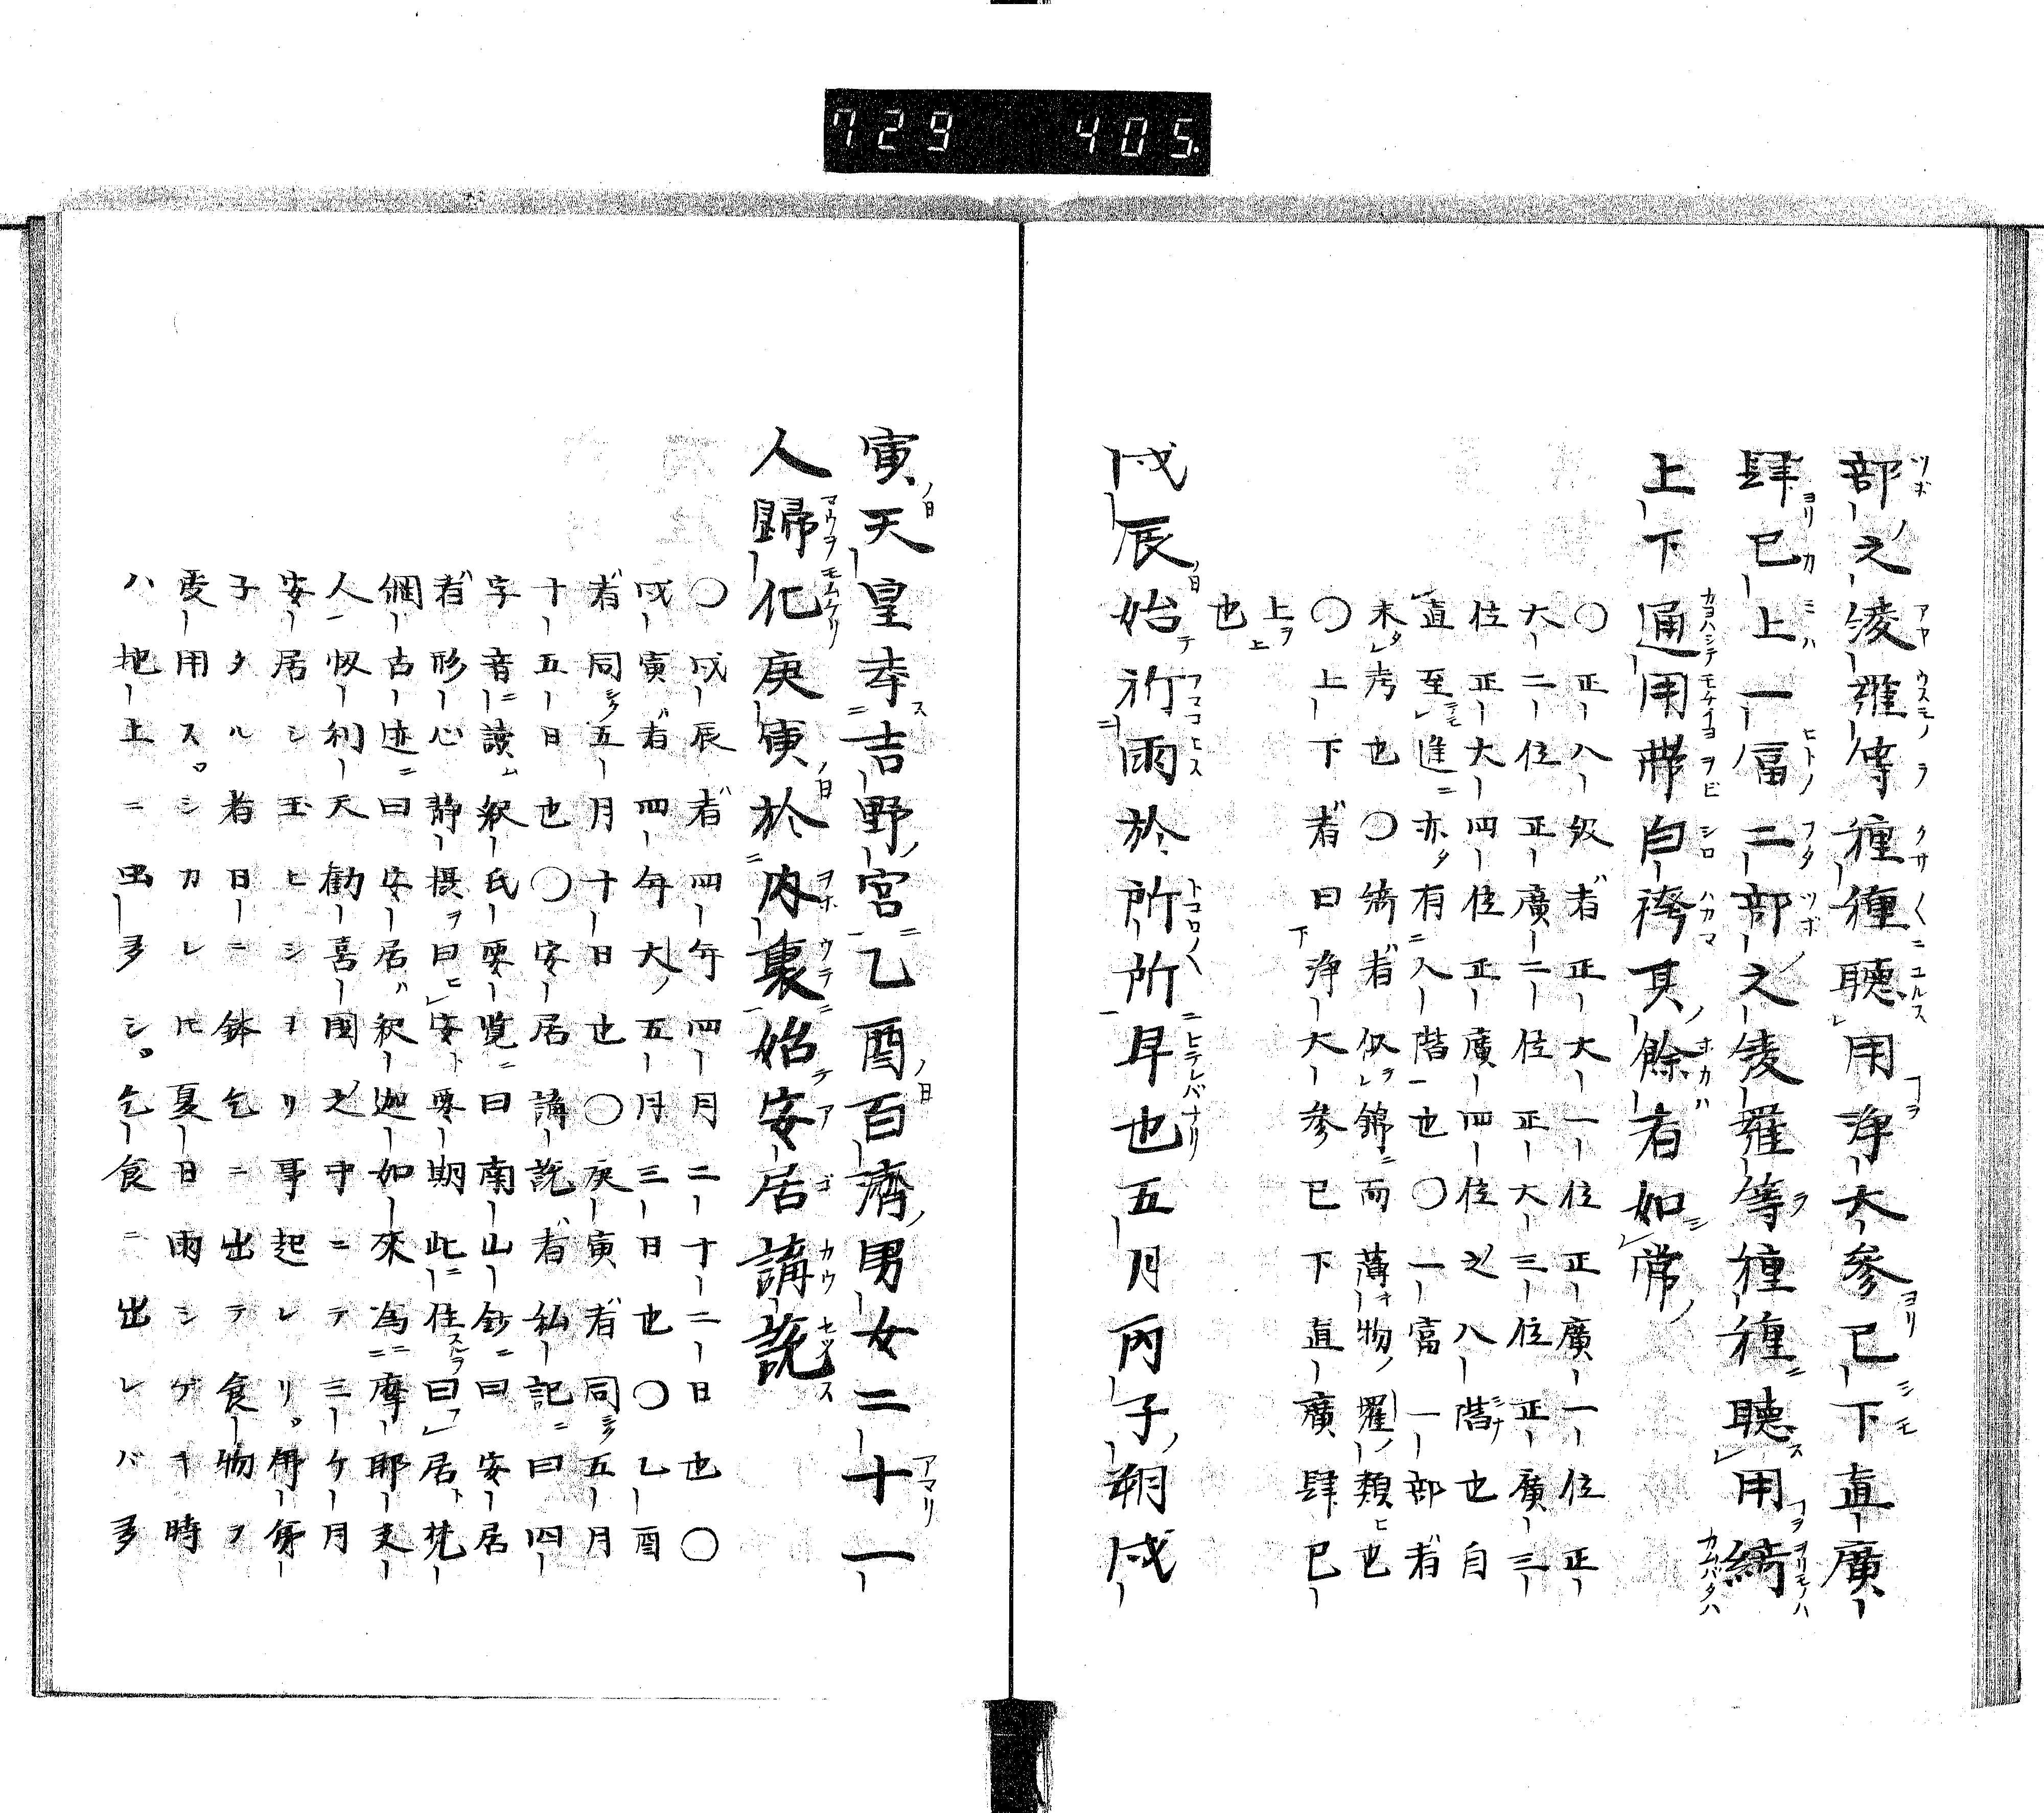 729 405
部之綾羅等種種聴用浄大参已下直廣
肆已上一冨二部之綾羅等種種聴用綺
上下通用帯白袴其餘者如常
〇正八級者正大一位正廣一位正
大二位正廣二位正大三位正廣三
位正大四位正廣四位之八階也自
直至進亦有入階也〇一冨一部者
未考也〇綺者似錦而薄物羅類ヒ也
〇上下者曰浄大参已下直廣肆已
上ヲ
也
戊辰始祈雨於所所旱也五月丙子朔戊
寅天皇幸吉野宮乙酉百濟男女二十一
人歸化庚寅於内裏始安居講説
〇戊辰者四年四月二十二日也〇
戊寅者四年大五月三日也〇乙酉
者同五月十日也〇庚寅者同五月
十五日也〇安居講説者私記ニ曰四
字音ニ讀ム釈氏要覧ニ曰南山鈔ニ曰安居
者形心静摂ヲ曰ヒ安ト要期此住スルヲ曰フ居ト梵
網古迹ニ曰安居ハ釈迦如來為ニ摩耶夫
人忉利天勧喜園之中ニテ三ケ月
安居シ玉ヒシヨリ事起レリ。佛弟
子タル者日ニ鉢乞ニ出テ食物ヲ
受用ス。シカレ𪜈夏日雨シゲキ時
ハ地上ニ虫多シ。乞食ニ出レバ多